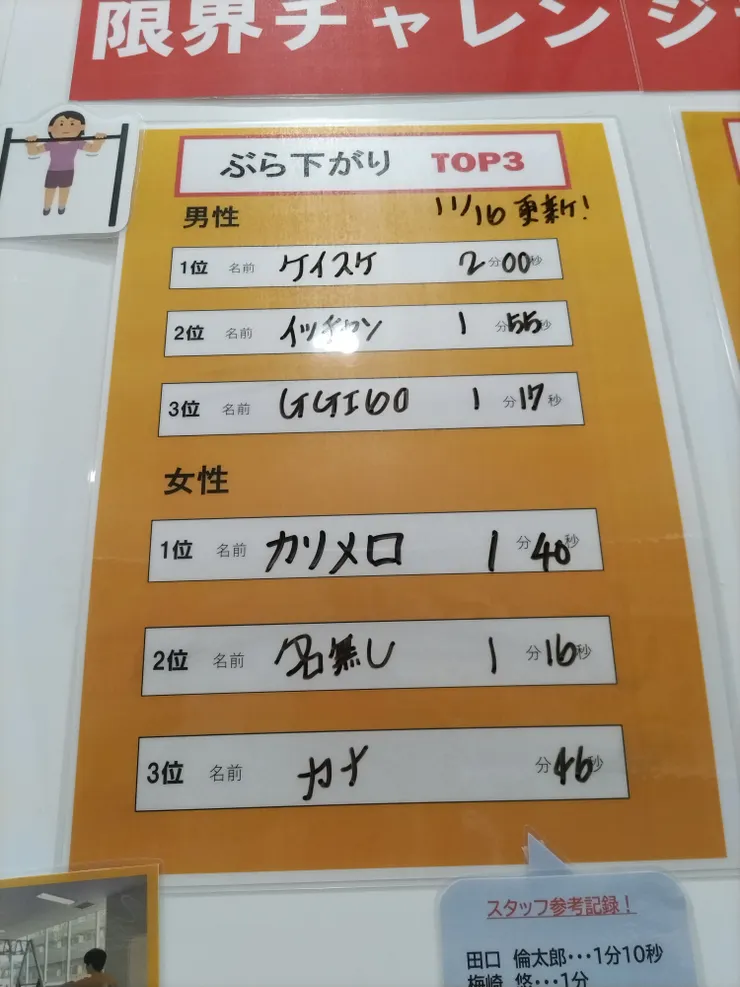 限界チャレンジ
ぶら下がり TOP3
男性 11/16更新!
1位 名前 ケイスケ 2分00秒
2位 名前 イッチャン 1分55秒
3位 名前 GGI60 1分17秒
女性
1位 名前 カリメロ 1分40秒
2位 名前 名無し 1分16秒
3位 名前 カナ 分46秒
スタッフ参考記録!
田口 倫太郎・・・1分10秒
梅崎 悠・・・1分